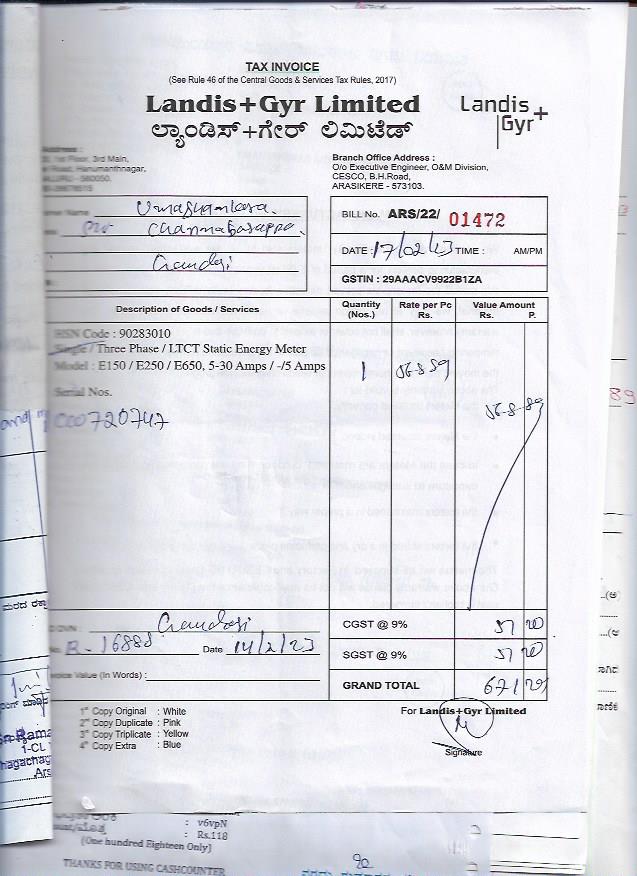 TAX INVOICE
(See Rule 46 of the Central Goods & Services Tax Rules, 2017)
Landis+Gyr Limited
ಲ್ಯಾಂಡಿಸ್+ಗೇರ್ ಲಿಮಿಟೆಡ್
Landis+
Gyr
1st Floor, 3rd Main,
Road, Hanumanthnagar,
560050.
Branch Office Address :
O/o Executive Engineer, O&M Division,
CESCO, B.H.Road,
ARASIKERE - 573103.
Name Umashankara.
Channabasappa.
BILL No. ARS/22/ 01472
DATE : 17/02/23 TIME : AM/PM
GSTIN : 29AAACV9922B1ZA
Description of Goods / Services
Quantity (Nos.)
Rate per Pc Rs.
Value Amount Rs. P.
HSN Code : 90283010
Single / Three Phase / LTCT Static Energy Meter
Model : E150 / E250 / E650, 5-30 Amps / -/5 Amps
1 568.89
568.89
Serial Nos.
000720747
CGST @ 9% 51 20
R-16888 Date 14/2/23
SGST @ 9% 51 20
Value (In Words) :
GRAND TOTAL 671 29
1st Copy Original : White
2nd Copy Duplicate : Pink
3rd Copy Triplicate : Yellow
4th Copy Extra : Blue
For Landis+Gyr Limited
Signature
1-CL
: v6vpN
: Rs.118
(One hundred Eighteen Only)
THANKS FOR USING CASHCOUNTER